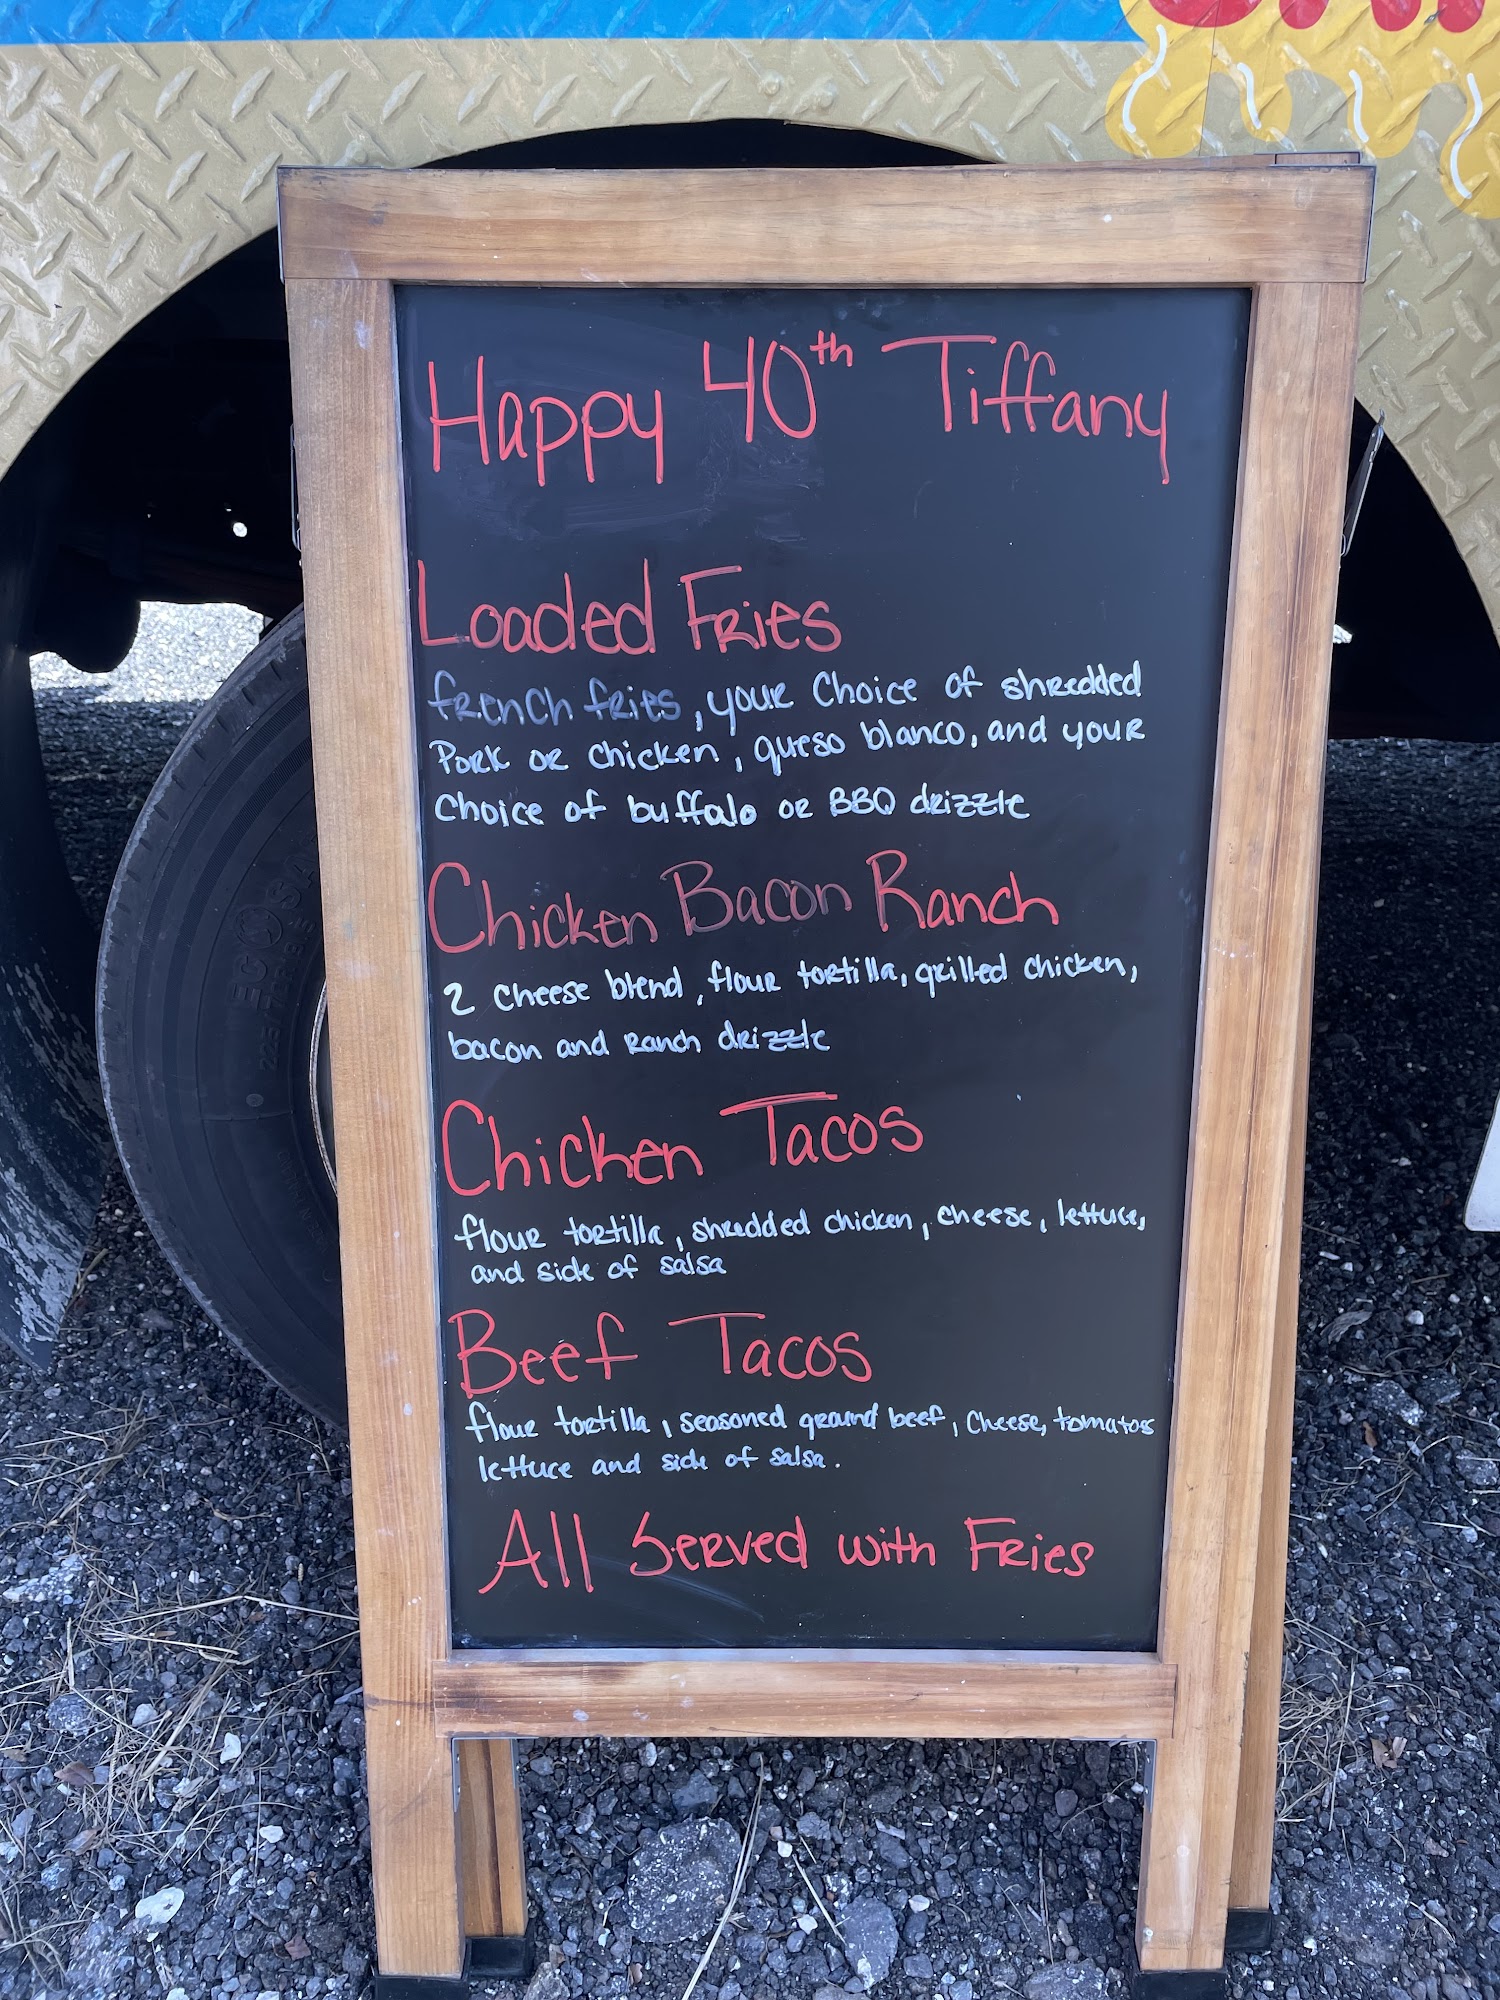 Happy 40th Tiffany
Loaded Fries
french fries, your choice of shredded
Pork or chicken, queso blanco, and your
choice of buffalo or BBQ drizzle
Chicken Bacon Ranch
2 cheese blend, flour tortilla, grilled chicken,
bacon and ranch drizzle
Chicken Tacos
flour tortilla, shredded chicken, cheese, lettuce,
and side of salsa
Beef Tacos
flour tortilla, seasoned ground beef, cheese, tomatos
lettuce and side of salsa.
All Served with Fries